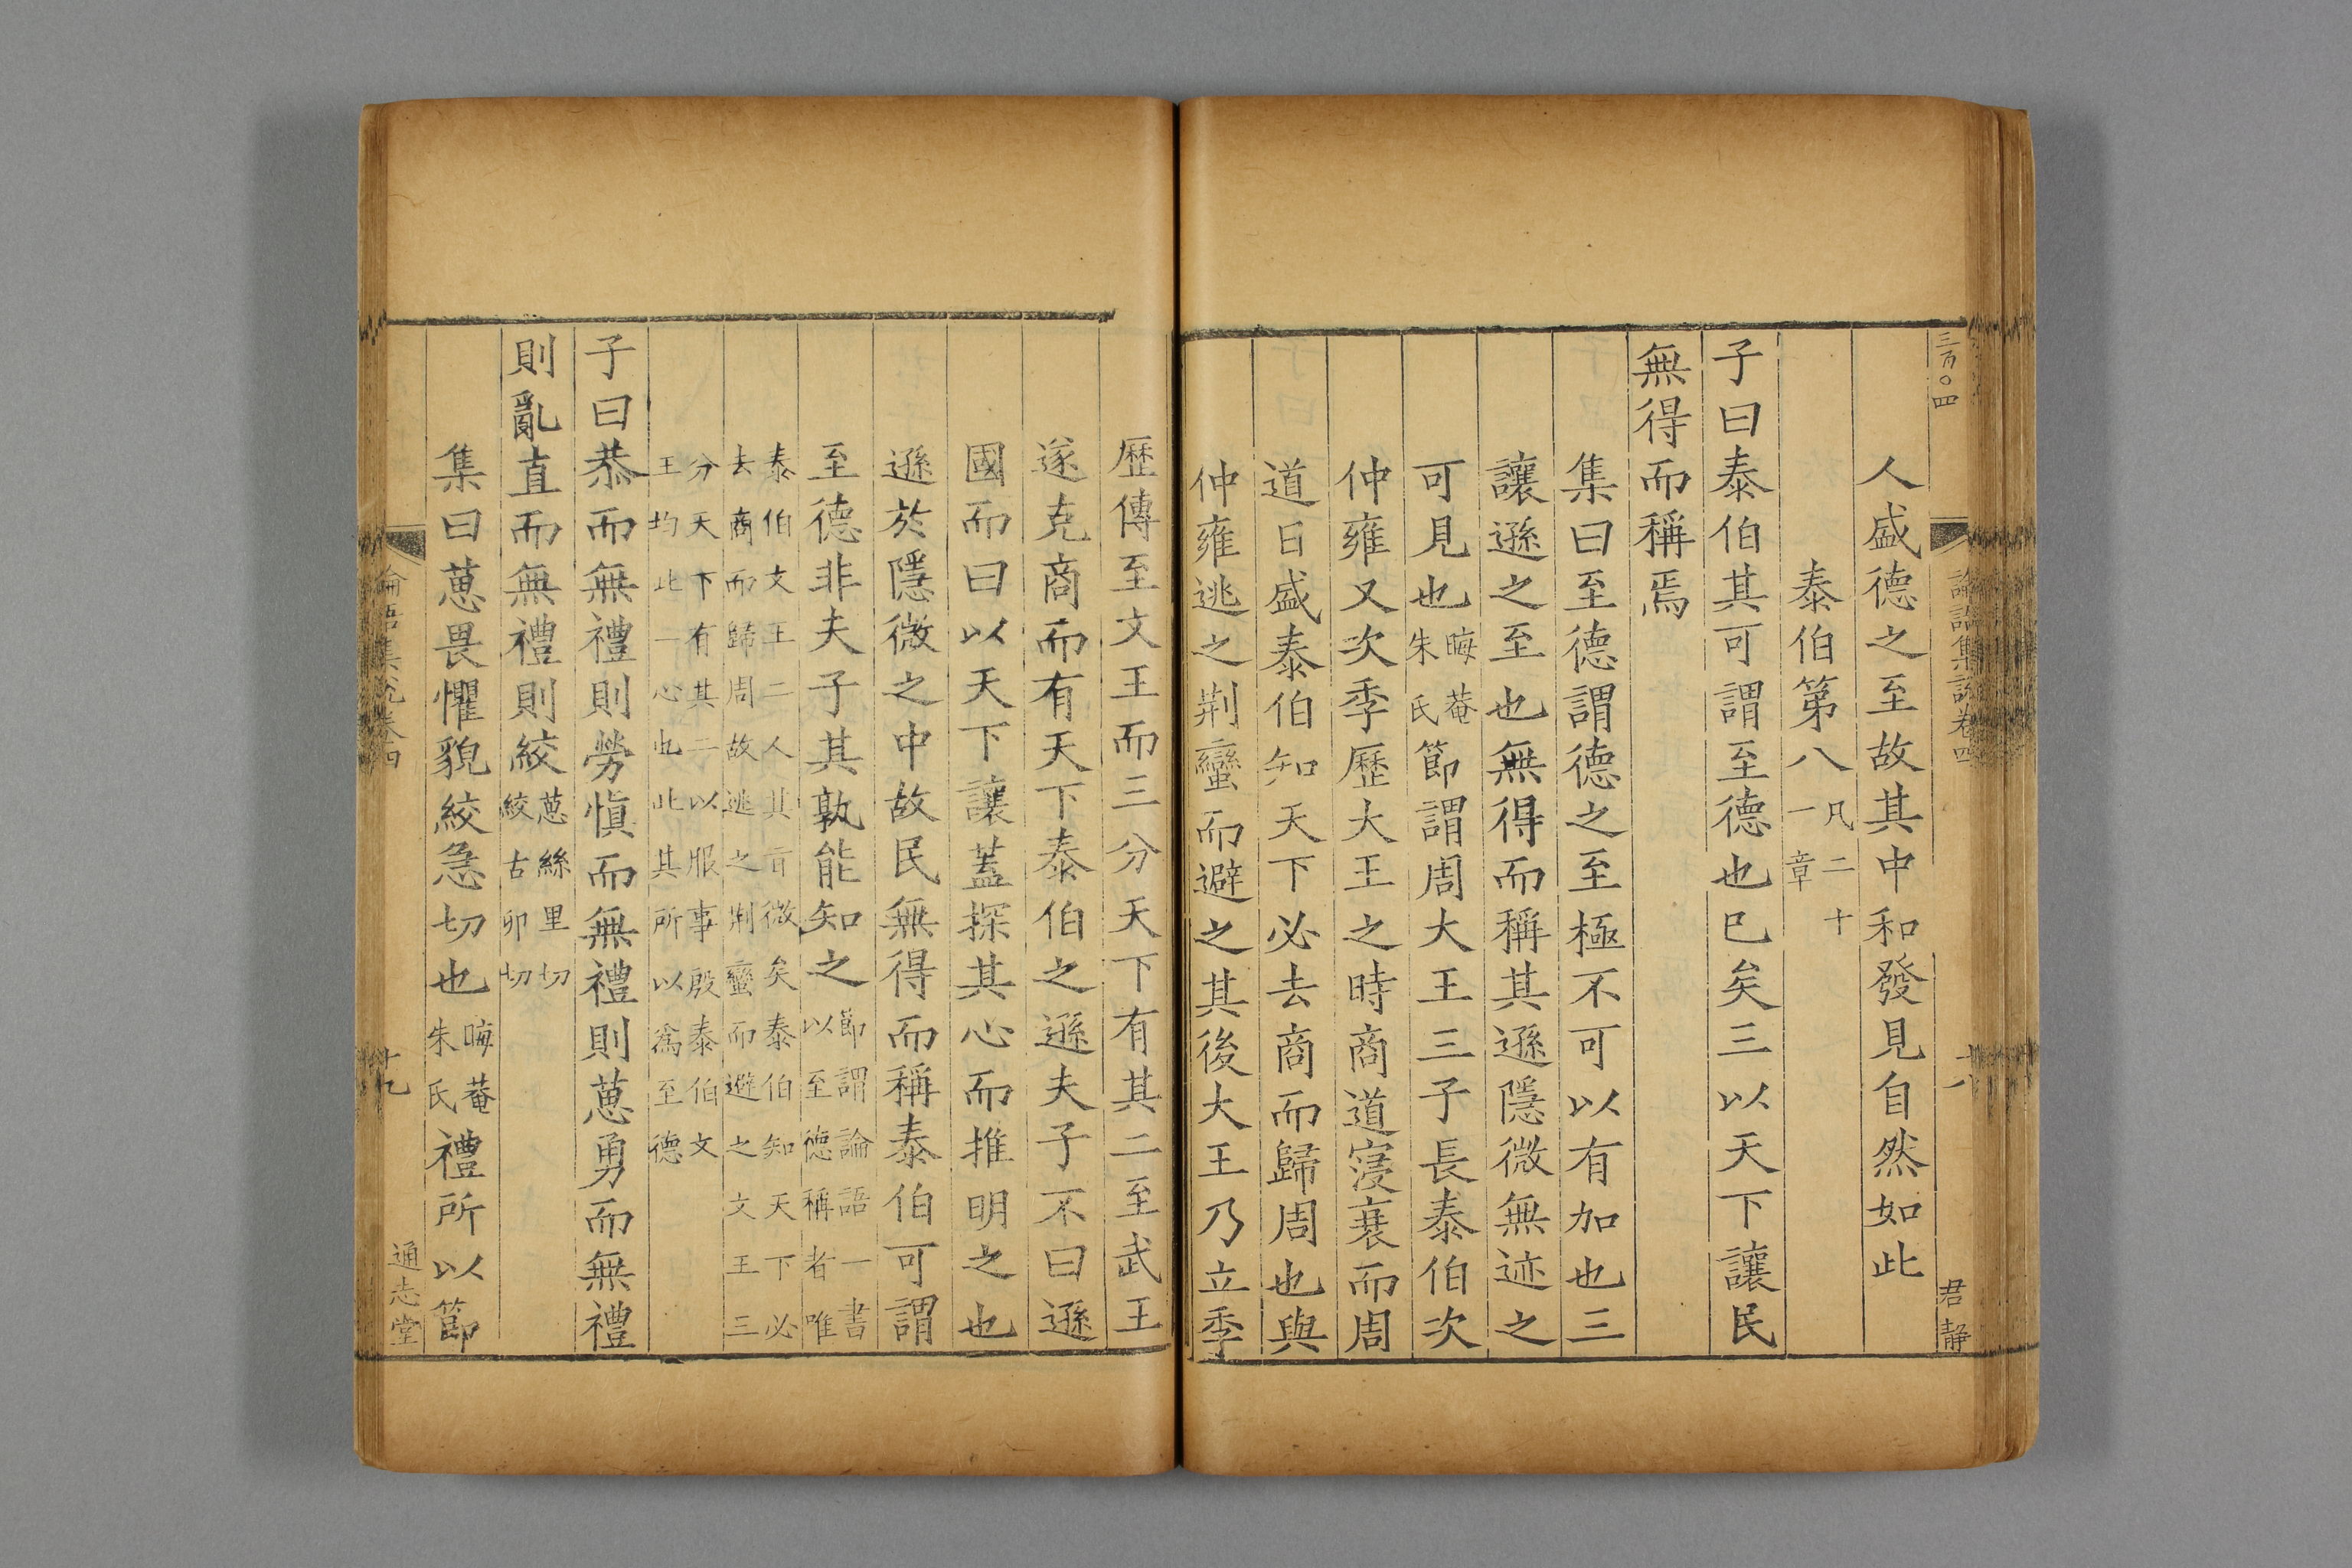 三百〇四
論語集說卷四
十八
君靜
人盛德之至故其中和發見自然如此
泰伯第八凡二十一章
子曰泰伯其可謂至德也巳矣三以天下讓民
無得而稱焉
集曰至德謂德之至極不可以有加也三
讓遜之至也無得而稱其遜隱微無迹之
可見也晦菴朱氏節謂周大王三子長泰伯次
仲雍又次季歷大王之時商道寖衰而周
道日盛泰伯知天下必去商而歸周也與
仲雍逃之荆蠻而避之其後大王乃立季
歷傳至文王而三分天下有其二至武王
遂克商而有天下泰伯之遜夫子不曰遜
國而曰以天下讓蓋探其心而推明之也
遜於隱微之中故民無得而稱泰伯可謂
至德非夫子其孰能知之節謂論語一書以至德稱者唯
泰伯文王二人其㫖微矣泰伯知天下必去商而歸周故逃之荆蠻而避之文王三
分天下有其二以服事殷泰伯文王均此一心也此其所以為至德
子曰恭而無禮則勞慎而無禮則葸勇而無禮
則亂直而無禮則絞葸絲里切絞古卯切
集曰葸畏懼貌絞急切也晦菴朱氏禮所以節
論語集說卷四
十九
通志堂